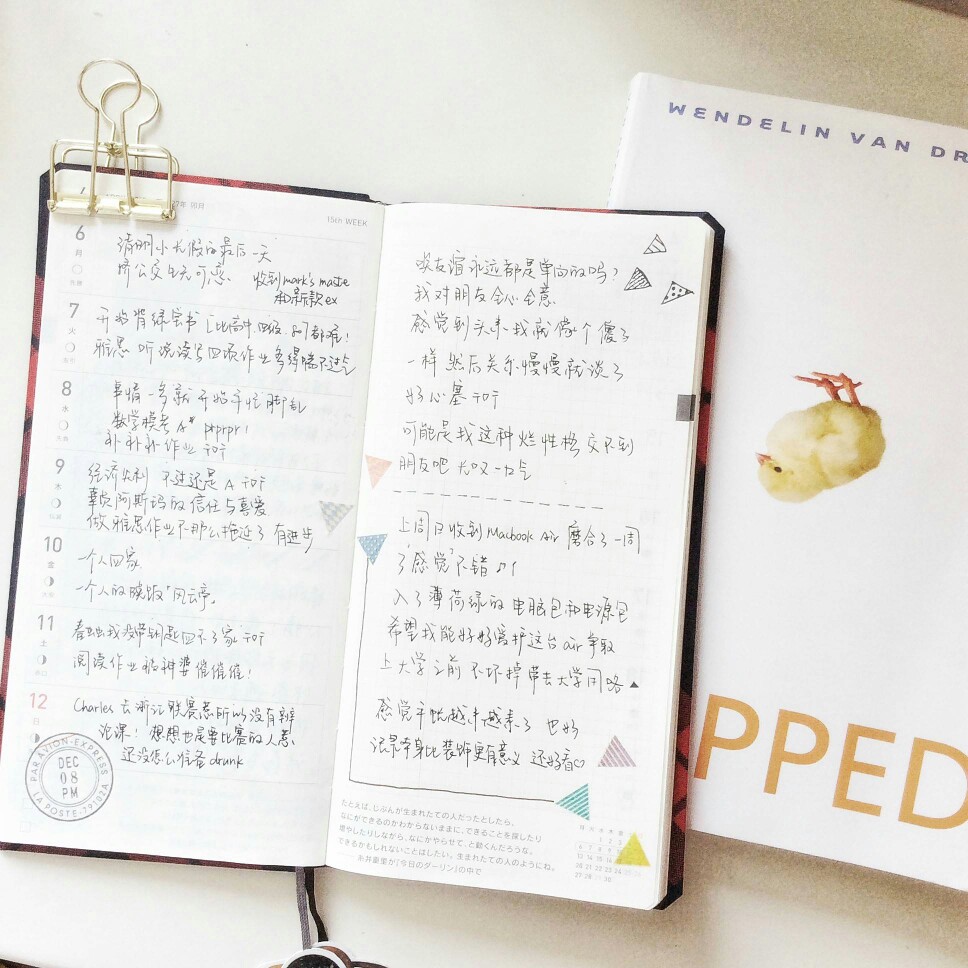 15th WEEK
6
月
清明小长假的最后一天
挤公交生无可恋 收到mark's maste
和新款ex
7
火
开始背绿宝书
雅思 听说读写四项作业多得喘不过气
8
水
事情一多就开始手忙脚乱
数学模考 A* prprpr!
补补补作业
9
木
经济失利 不过还是A
辜负阿斯玛的信任与喜爱
做雅思作业不那么拖延了 有进步
10
金
一个人回家
一个人的晚饭
11
土
我没带钥匙回不了家
阅读作业被神婆催催催!
12
日
Charles去浙江联赛 所以没有辩
论课! 想想也是要比赛的人惹
还没怎么准备drunk
PAR AVION-EXPRESS
DEC
08
PM
LA POSTE-79102A
唉友谊永远都是单向的吗?
我对朋友全心全意
感觉到头来我就像个傻子
一样 然后关系慢慢就淡了
好心塞
可能是我这种烂性格交不到
朋友吧
上周日收到Macbook Air 磨合了一周
了感觉不错
入了薄荷绿的电脑包和电源包
希望我能好好爱护这台air争取
上大学之前不坏掉带去大学用咯
感觉手帐越来越素了 也好
记录本身比装饰更有意义 还好看♡
たとえば、じぶんが生まれたての人だったとしたら、
なにができるのかわからないままに、できることを探したり
増やしたりしながら、なにかやらせて、と動くんだろうな。
できるかもしれないことはしたい。生まれたての人のようにね。
糸井重里が『今日のダーリン』の中で
WENDELIN VAN DR
PPED